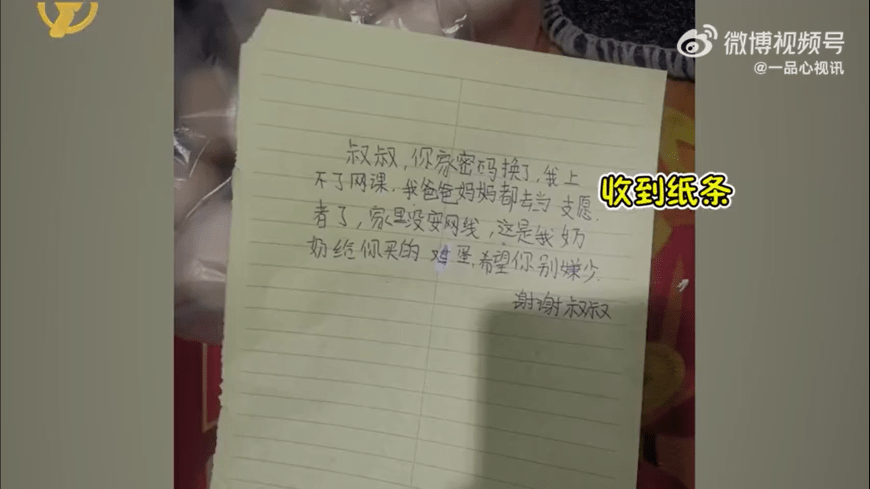 微博视频号
@一品心视讯
叔叔,你家密码换了,我上
不了网课.我爸爸妈妈都去当支愿.
者了,家里没安网线,这是我奶
奶给你买的鸡蛋,希望你别嫌少.
谢谢叔叔
收到纸条